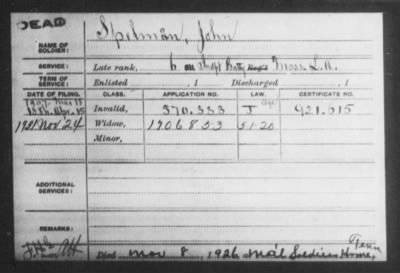 DEAD
NAME OF SOLDIER: Spelman, John
SERVICE: Late rank, Batty Mass L.A.
TERM OF SERVICE: Enlisted , 1 Discharged , 1
DATE OF FILING. CLASS. APPLICATION NO. LAW. CERTIFICATE NO.
Invalid, 370.333 J Age 921.615
Nov 24 Widow, 1906853 51-20
Minor,
ADDITIONAL SERVICES:
REMARKS: Died Nov 8, 1926, at Nat'l Soldiers Home, Tenn